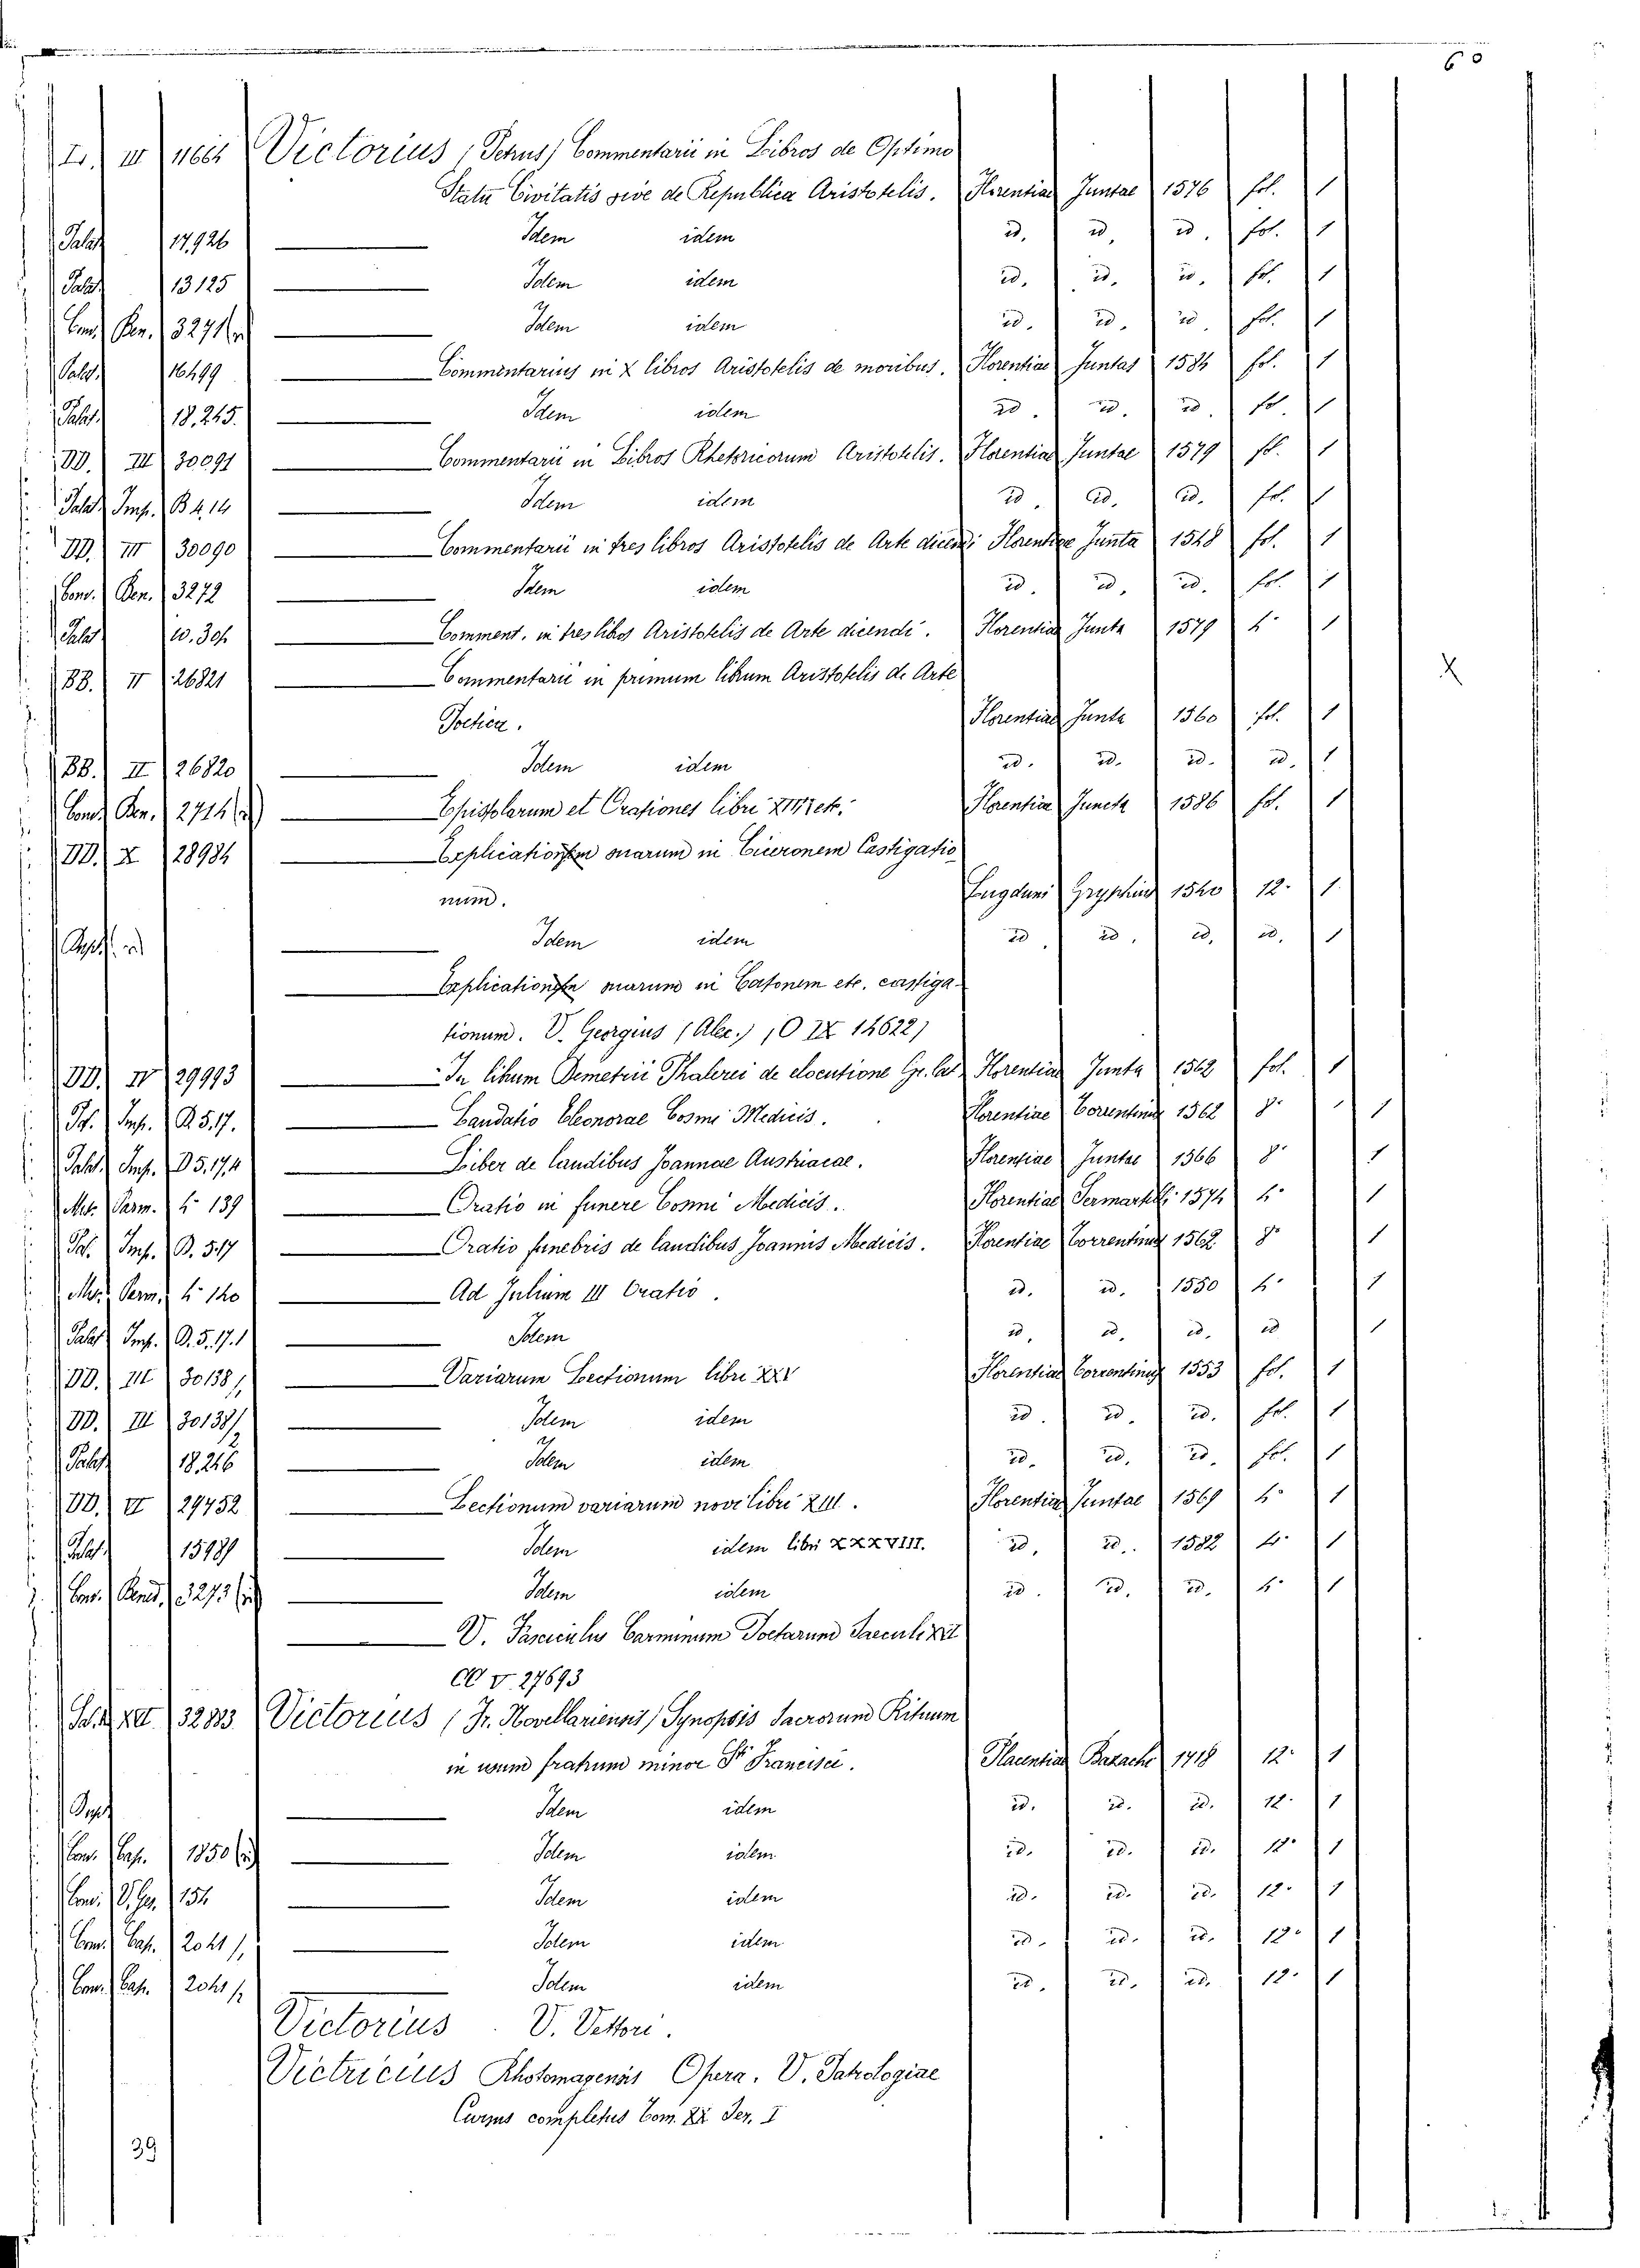 60
L. III 11664 Victorius (Petrus) Commentarii in Libros de Optimo
Statu Civitatis sive de Republica Aristotelis. Florentiae Juntae 1576 fol. 1
Palat 17,926 Idem idem id. id. id. fol. 1
Palat 13125 Idem idem id. id. id. fol. 1
Conv. Ben. 3271 Idem idem id. id. id. fol. 1
Palat. 16499 Commentarius in X libros Aristotelis de moribus. Florentiae Juntas 1584 fol. 1
Palat. 18,245. Idem idem id. id. id. fo. 1
DD. III 30091 Commentarii in Libros Rhetoricorum Aristotelis. Florentiae Juntae 1579 fol. 1
Palat Imp. B 4.14 Idem idem id. id. id. fol. 1
DD. III 30090 Commentarii in tres libros Aristotelis de Arte dicendi Florentiae Junta 1548 fol. 1
Conv. Ben. 3272 Idem idem id. id. id. fol. 1
Palat Comment. in tres libos Aristotelis de Arte dicendi. Florentiae Junta 1579 4° 1
BB. II 26821 Commentarii in primum librum Aristotelis de Arte
Poetica. Florentiae Junta 1560 fol. 1
BB. II 26820 Idem idem id. id. id. id. 1
Conv. Ben. 2714 Epistolarum et Orationes libri XIV etc. Florentiae Juncta 1586 fol. 1
DD. X 28984 Explicationum suarum in Ciceronem Castigatio
num. Lugduni Gryphius 1540 12° 1
Idem idem id id. id. id. 1
Explicationum suarum in Catonem etc. castiga-
tionum. V. Georgius (Alex.) 10 IX 14622)
DD. IV 29993 In librum Demetrii Phalerei de elocutione Gr. lat. Florentiae Junta 1562 fol. 1
Pal. Imp. B.5.17. Laudatio Eleonorae Cosmi Medicis. Florentiae Torrentinus 1562 8° 1
Palat. Imp. B5.17.4 Liber de laudibus Joannae Austriacae. Florentiae Juntae 1566 8° 1
Misc. Parm. 4° 139 Oratio in funere Cosmi Medicis. Florentiae Sermartelli 1574 4° 1
Pal. Imp. B. 5.17 Oratio funebris de laudibus Joannis Medicis. Florentiae Torrentinus 1562 8° 1
Misc. Parm. 4° 140 Ad Julium III Oratio. id. id. 1550 4° 1
Palat Imp. B.5.17.1 Idem id. id. id. id 1
DD. III 30138/1 Variarum Lectionum libri XXV Florentiae Torrentinus 1553 fol. 1
DD. III 30138/2 Idem idem id. id. id. fol. 1
Palat 18,246 Idem idem id. id. id. fol. 1
DD. VI 29452 Lectionum variarum novi libri XIII. Florentiae Juntae 1569 4° 1
Palat. 15989 Idem idem libri XXXVIII. id. id. 1582 4° 1
Conv. Bened. 3273 Idem idem id. id. id. 4° 1
V. Fasciculus Carminum Poetarum Saeculi XVI
CC V 27693
XVI 32823 Victorius (Fr. Novellariensis) Synopsis Sacrorum Rituum
in usum fratrum minor Sti Francisci. Placentiae Bazachi 1718 12° 1
Idem idem id. id. id. 12° 1
Conv. Cap. 1850 Idem idem id. id. id. 12° 1
Conv. 154 Idem idem id. id. id. 12° 1
Conv. Cap. 2041/1 Idem idem id. id. id. 12° 1
Conv. Cap. 2041/2 Idem idem id. id. id. 12° 1
Victorius V. Vettori.
Victricius Rhotomagensis Opera. V. Patrologiae
Cursus completus Tom. XX Ser. I
39